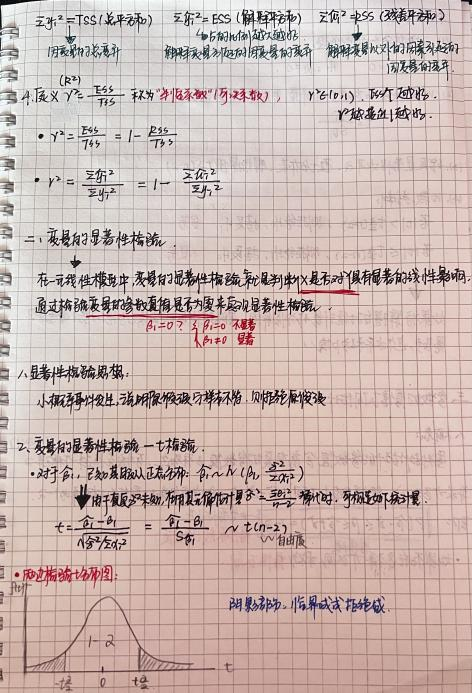 Σyi² = TSS (总平方和)  Σŷi² = ESS (解释平方和)  Σûi² = RSS (残差平方和)
占的比例越大越好
因变量的总离开  解释变量引起的因变量的离开  解释变量以外的因素引起的
因变量的离开.
(R²)
4.定义 r² = ESS/TSS 称为"判定系数"(可决系数), r²∈(0,1), ESS↑越好.
r²越接近1越好.
• r² = ESS/TSS = 1 - RSS/TSS
• r² = Σŷi²/Σyi² = 1 - Σûi²/Σyi²
二、变量的显著性检验.
在一元线性模型中,变量的显著性检验就是判断X是否对Y具有显著的线性影响.
通过检验变量的参数真值是否为零来实现显著性检验.
β₁=0? { β₁=0 不显著
β₁≠0 显著
1.显著性检验思想:
小概率事件发生,说明原假设与样本不符,则拒绝原假设
2.变量的显著性检验—t检验.
•对于β̂₁,已知其服从正态分布: β̂₁~N(β₁, σ²/Σxi²)
由于真实σ²未知,在用其无偏估计量σ̂² = Σûi²/n-2 替代时,可构造如下统计量.
t = β̂₁-β₁/√σ̂²/Σxi² = β̂₁-β₁/Sβ̂₁ ~ t(n-2)
自由度
•双边检验t分布图:
f(t)
阴影部分: 临界域或拒绝域.
1-α
-tα/2 0 tα/2 t